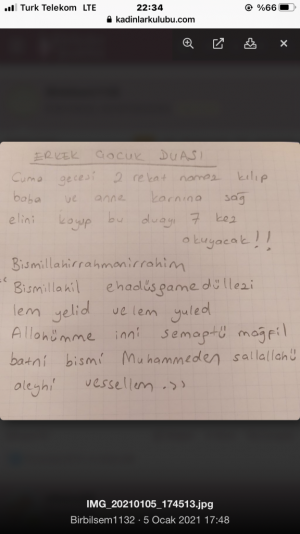 Turk Telekom LTE
22:34
%66
kadinlarkulubu.com
ERKEK ÇOCUK DUASI
Cuma gecesi 2 rekat namaz kılıp
baba ve anne karnına sağ
elini koyup bu duayı 7 kez
okuyacak!!
Bismillahirrahmanirrahim
"Bismillahil ehadüssamedüllezi
lem yelid ve lem yuled
Allahümme inni semaptü mağfil
batni bismi Muhammeden sallallahü
aleyhi vessellem.>>
IMG_20210105_174513.jpg
Birbilsem1132 · 5 Ocak 2021 17:48